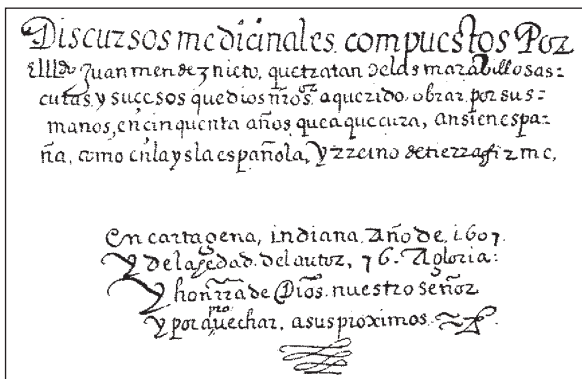 Discursos medicinales, compuestos Por
El llº Juan mendez nieto, que tratan de las marabillosas=
curas, y sucesos que dios nr̃o sºr a querido, obrar, por sus=
manos, en cinquenta años que a que cura, ansi en espa=
ña, como en la ysla española, Y rreino de tierra firme,
En cartagena, indiana. Año de, 1607.
Y de la edad. del autor, 76. A gloria:
Y honrra de Dios nuestro señor
Y por aprouechar, a sus proximos.